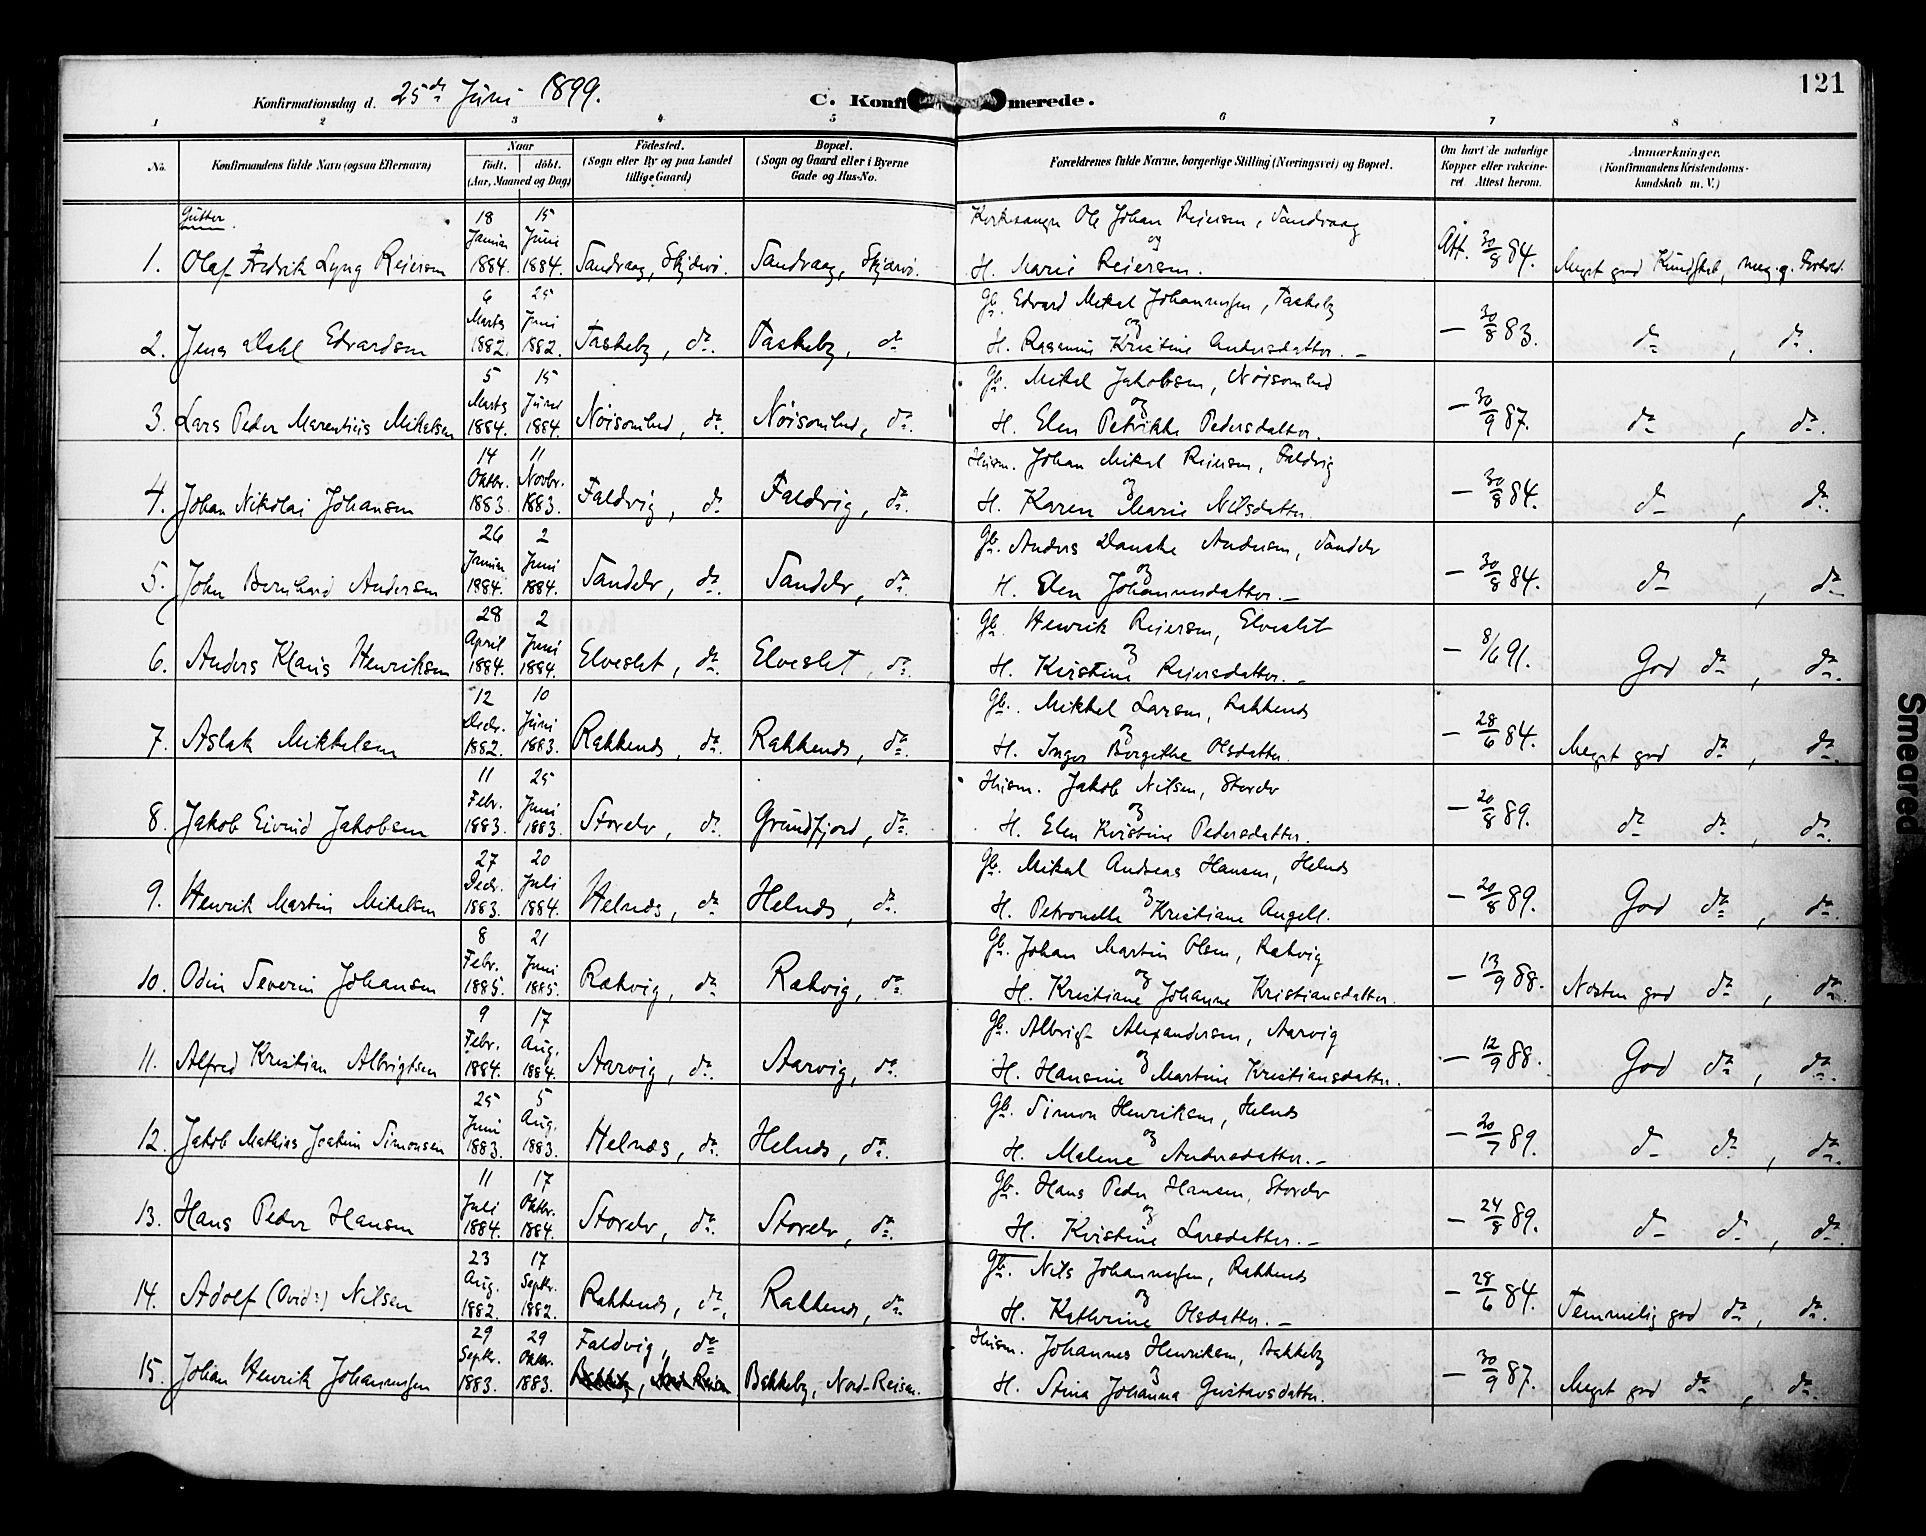 121
Konfirmationsdag d. 25de Juni 1899. C. Konfirmerede.
1 2 3 4 5 6 7 8
No. Konfirmandens fulde Navn (ogsaa Efternavn) Naar født. døbt. (Aar, Maaned og Dag) Fødested. (Sogn eller By og paa Landet tillige Gaard) Bopæl. (Sogn og Gaard eller i Byerne Gade og Hus-No. Forældrenes fulde Navne, borgerlige Stilling (Næringsvei) og Bopæl. Om havt de naturlige Kopper eller vakcineret Attest herom. Anmærkninger. (Konfirmandens Kristendomskundskab m. V.)
Gutter
18 15 Kirkesanger Ole Johan Reiersen, Sandvaag
Januar Juni og
1. Olaf Fredrik Lyng Reiersen 1884. 1884. Sandvaag, Skjærvø. Sandvaag, Skjærvø. H. Marie Reiersen. Att. 30/8 84. Meget god Kundskab, meg. g. Forhold.
6 25 Gb. Edvard Mikal Johannesen, Taskeby
Marts Juni og
2. Jens Dahl Edvardsen 1882. 1882. Taskeby, do. Taskeby, do H. Rasmine Kristine Andersdatter. – – 30/8 83. do , do.
5 15 Gb. Mikal Jakobsen, Nøisomhed
Marts Juni og
3. Lars Peder Marentius Mikalsen 1884. 1884. Nøisomhed, do. Nøisomhed, do. H. Elen Petrikke Pedersdatter. – 30/9 87. do , do.
14 11 Husm. Johan Mikal Reiersen, Faldvig
Oktbr. Novbr. og
4. Johan Nikolai Johansen 1883. 1883. Faldvig, do Faldvig, do. H. Karen Marie Nilsdatter. – 30/8 84. do , do.
26 2 Gb. Anders Danske Andersen, Sandelv
Januar Juni og
5. John Bernhard Andersen 1884. 1884. Sandelv, do. Sandelv, do. H. Elen Johannesdatter. – – 30/8 84. do , do
28 2 Gb. Henrik Reiersen, Elveslet
April Juni og
6. Anders Klaus Henriksen 1884. 1884. Elveslet, do. Elveslet, do. H. Kirstine Reiersdatter. – – 8/6 91. God do , do.
12 10 Gb. Mikkel Larsen, Rakkenes
Decbr. Juni og
7. Aslak Mikkelsen 1882. 1883. Rakkenes, do. Rakkenes, do. H. Inger Borgithe Olsdatter. – 28/6 84. Meget god do , do.
11 25 Husm. Jakob Nilsen, Storelv
Febr. Juni og
8. Jakob Eivind Jakobsen 1883. 1883. Storelv, do. Grundfjord, do. H. Elen Kristine Pedersdatter. – 20/8 89. do do , do.
27 20 Gb. Mikal Andreas Hansen, Helnes
Decbr. Juli og
9. Henrik Martin Mikalsen 1883. 1884. Helnæs, do Helnes, do. H. Petronelle Kristiane Angell. – 20/8 89. God do , do.
8 21 Gb. Johan Martin Olsen, Rakvig
Febr. Juni og
10. Odin Severin Johansen 1885. 1885. Rakvig, do Rakvig, do. H. Kristiane Johanne Kristiansdatter. – 13/9 88. Næsten god do , do.
9 17 Gb. Albrigt Alexandersen, Aarvig
Febr. Aug. og
11. Alfred Kristian Albrigtsen 1884. 1884. Aarvig, do. Aarvig, do. H. Hansine Martine Kristiansdatter. – 12/9 88. God do , do.
25 5 Gb. Simon Henriksen, Helnes
Juni Aug. og
12. Jakob Mathias Joakim Simonsen 1883. 1883. Helnæs, do. Helnes, do. H. Malene Andersdatter. – – 20/7 89. do do , do.
11 17 Gb. Hans Peder Hansen, Storelv
Juli Oktbr. og
13. Hans Peder Hansen 1884. 1884. Storelv, do. Storelv, do. H. Kristine Larsdatter. – – 24/8 89. do do , do.
23 17 Gb. Nils Johannesen, Rakkenes
Aug. Septbr. og
14. Adolf (Ovid?) Nilsen 1882. 1882. Rakkenes, do, Rakkenes, do. H. Kathrine Olsdatter. – – 28/6 84. Temmelig god do , do.
29 29 Faldvig, do Husm. Johannes Henriksen, Bakkeby
Septbr. Oktbr. og
15. Johan Henrik Johannesen 1883. 1883. Bakkeby, Nord-Reisen Bakkeby, Nord-Reisen. H. Stina Johanna Gustavsdatter. – 30/9 87. Meget god do , do.
Smeared